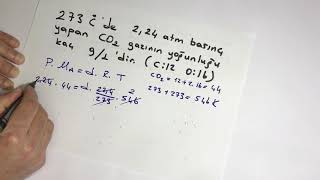 273 °C'de 2,24 atm basınç
yapan CO2 gazının yoğunluğu
kaç g/L'dir. (C:12 O:16)
P. MA = d. R. T
CO2 = 12+2.16 = 44
273+273 = 546 K
2,24 . 44 = d. 22,4/273 . 546 2